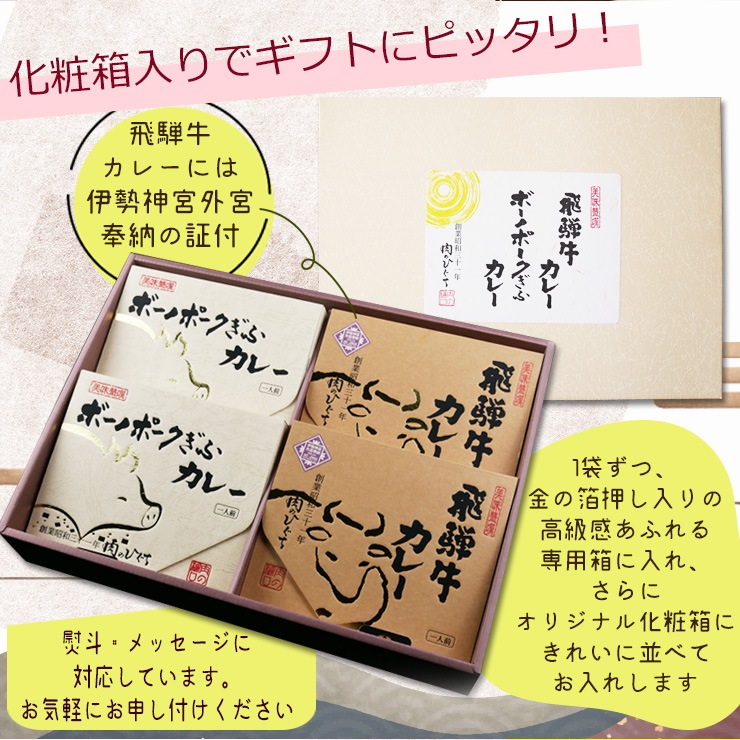 化粧箱入りでギフトにピッタリ！
飛騨牛
カレーには
伊勢神宮外宮
奉納の証付
美味禁選
飛騨牛
カレー
ボーノポークぎふ
カレー
創業昭和三十一年
肉のひぐち
ボーノポークぎふ
カレー
一人前
飛騨牛
カレー
創業昭和三十一年
肉のひぐち
ボーノポークぎふ
カレー
一人前
創業昭和三十一年
肉のひぐち
飛騨牛
カレー
創業昭和三十一年
肉のひぐち
一人前
1袋ずつ、
金の箔押し入りの
高級感あふれる
専用箱に入れ、
さらに
オリジナル化粧箱に
きれいに並べて
お入れします
熨斗・メッセージに
対応しています。
お気軽にお申し付けください